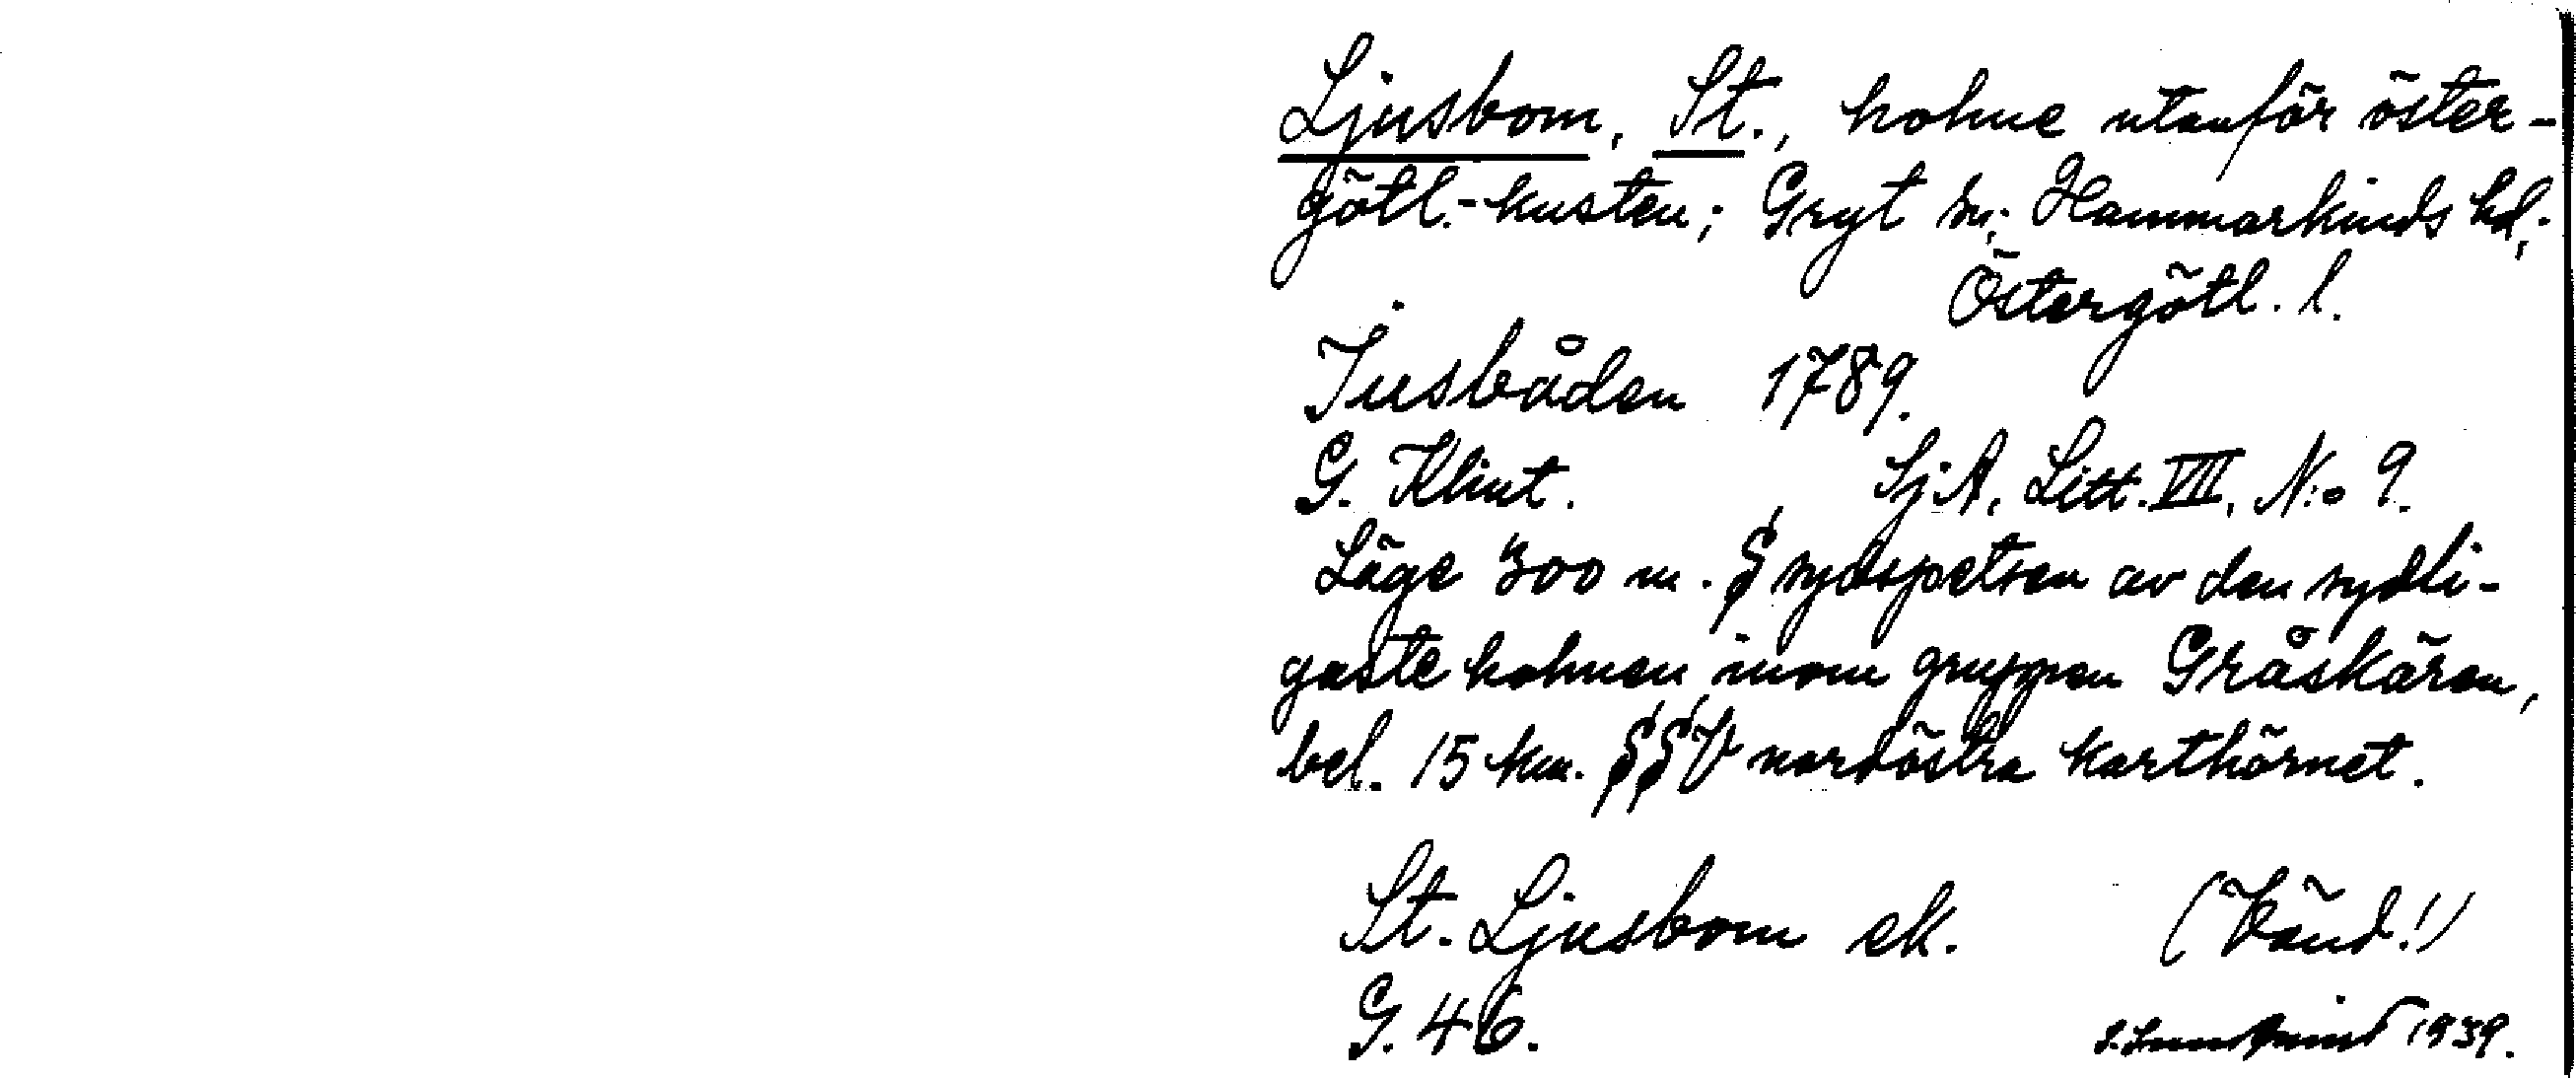 Ljusbom, St., holme utanför öster-
götl.-kusten; Gryt sn; Hammarkinds hd;
Östergötl. l.
Jusbåden 1789.
G. Klint. SjA, Litt. VII, N:o 9.
Läge 300 m. S sydspetsen av den sydli-
gaste holmen inom gruppen Gråskären,
bel. 15 km. SSV nordöstra karthörnet.
St. Ljusbom ek. (Vänd!)
G. 46.
1939.